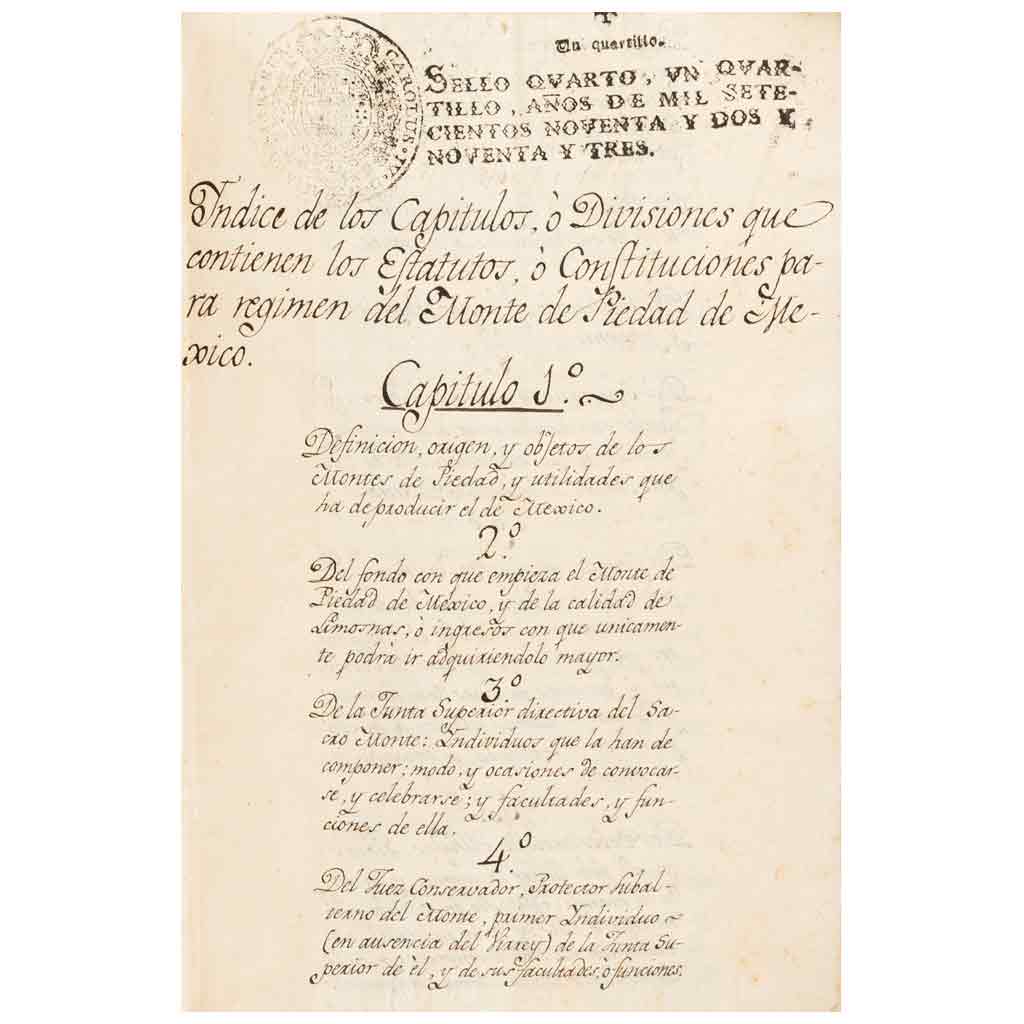 Un quartillo.
SELLO QVARTO, VN QVAR-
TILLO, AÑOS DE MIL SETE-
CIENTOS NOVENTA Y DOS Y
NOVENTA Y TRES.
CAROLUS·IV·
Yndice de los Capitulos, ò Divisiones que
contienen los Estatutos, ò Constituciones pa-
ra regimen del Monte de Piedad de Me-
xico.
Capitulo 1.º
Definicion, origen, y objetos de los
Montes de Piedad, y utilidades que
ha de producir el de Mexico.
2.º
Del fondo con que empieza el Monte de
Piedad de Mexico, y de la calidad de
Limosnas, ò ingresos con que unicamen-
te podrà ir adquiriendolo mayor.
3.º
De la Junta Superior directiva del Sa-
cro Monte: Yndividuos que la han de
componer: modo, y ocasiones de convocar-
se, y celebrarse; y facultades, y fun-
ciones de ella.
4.º
Del Juez Conservador, Protector subal-
terno del Monte, primer Yndividuo
(en ausencia del Virrey) de la Junta Su-
perior de èl, y de sus facultades, ò funciones.